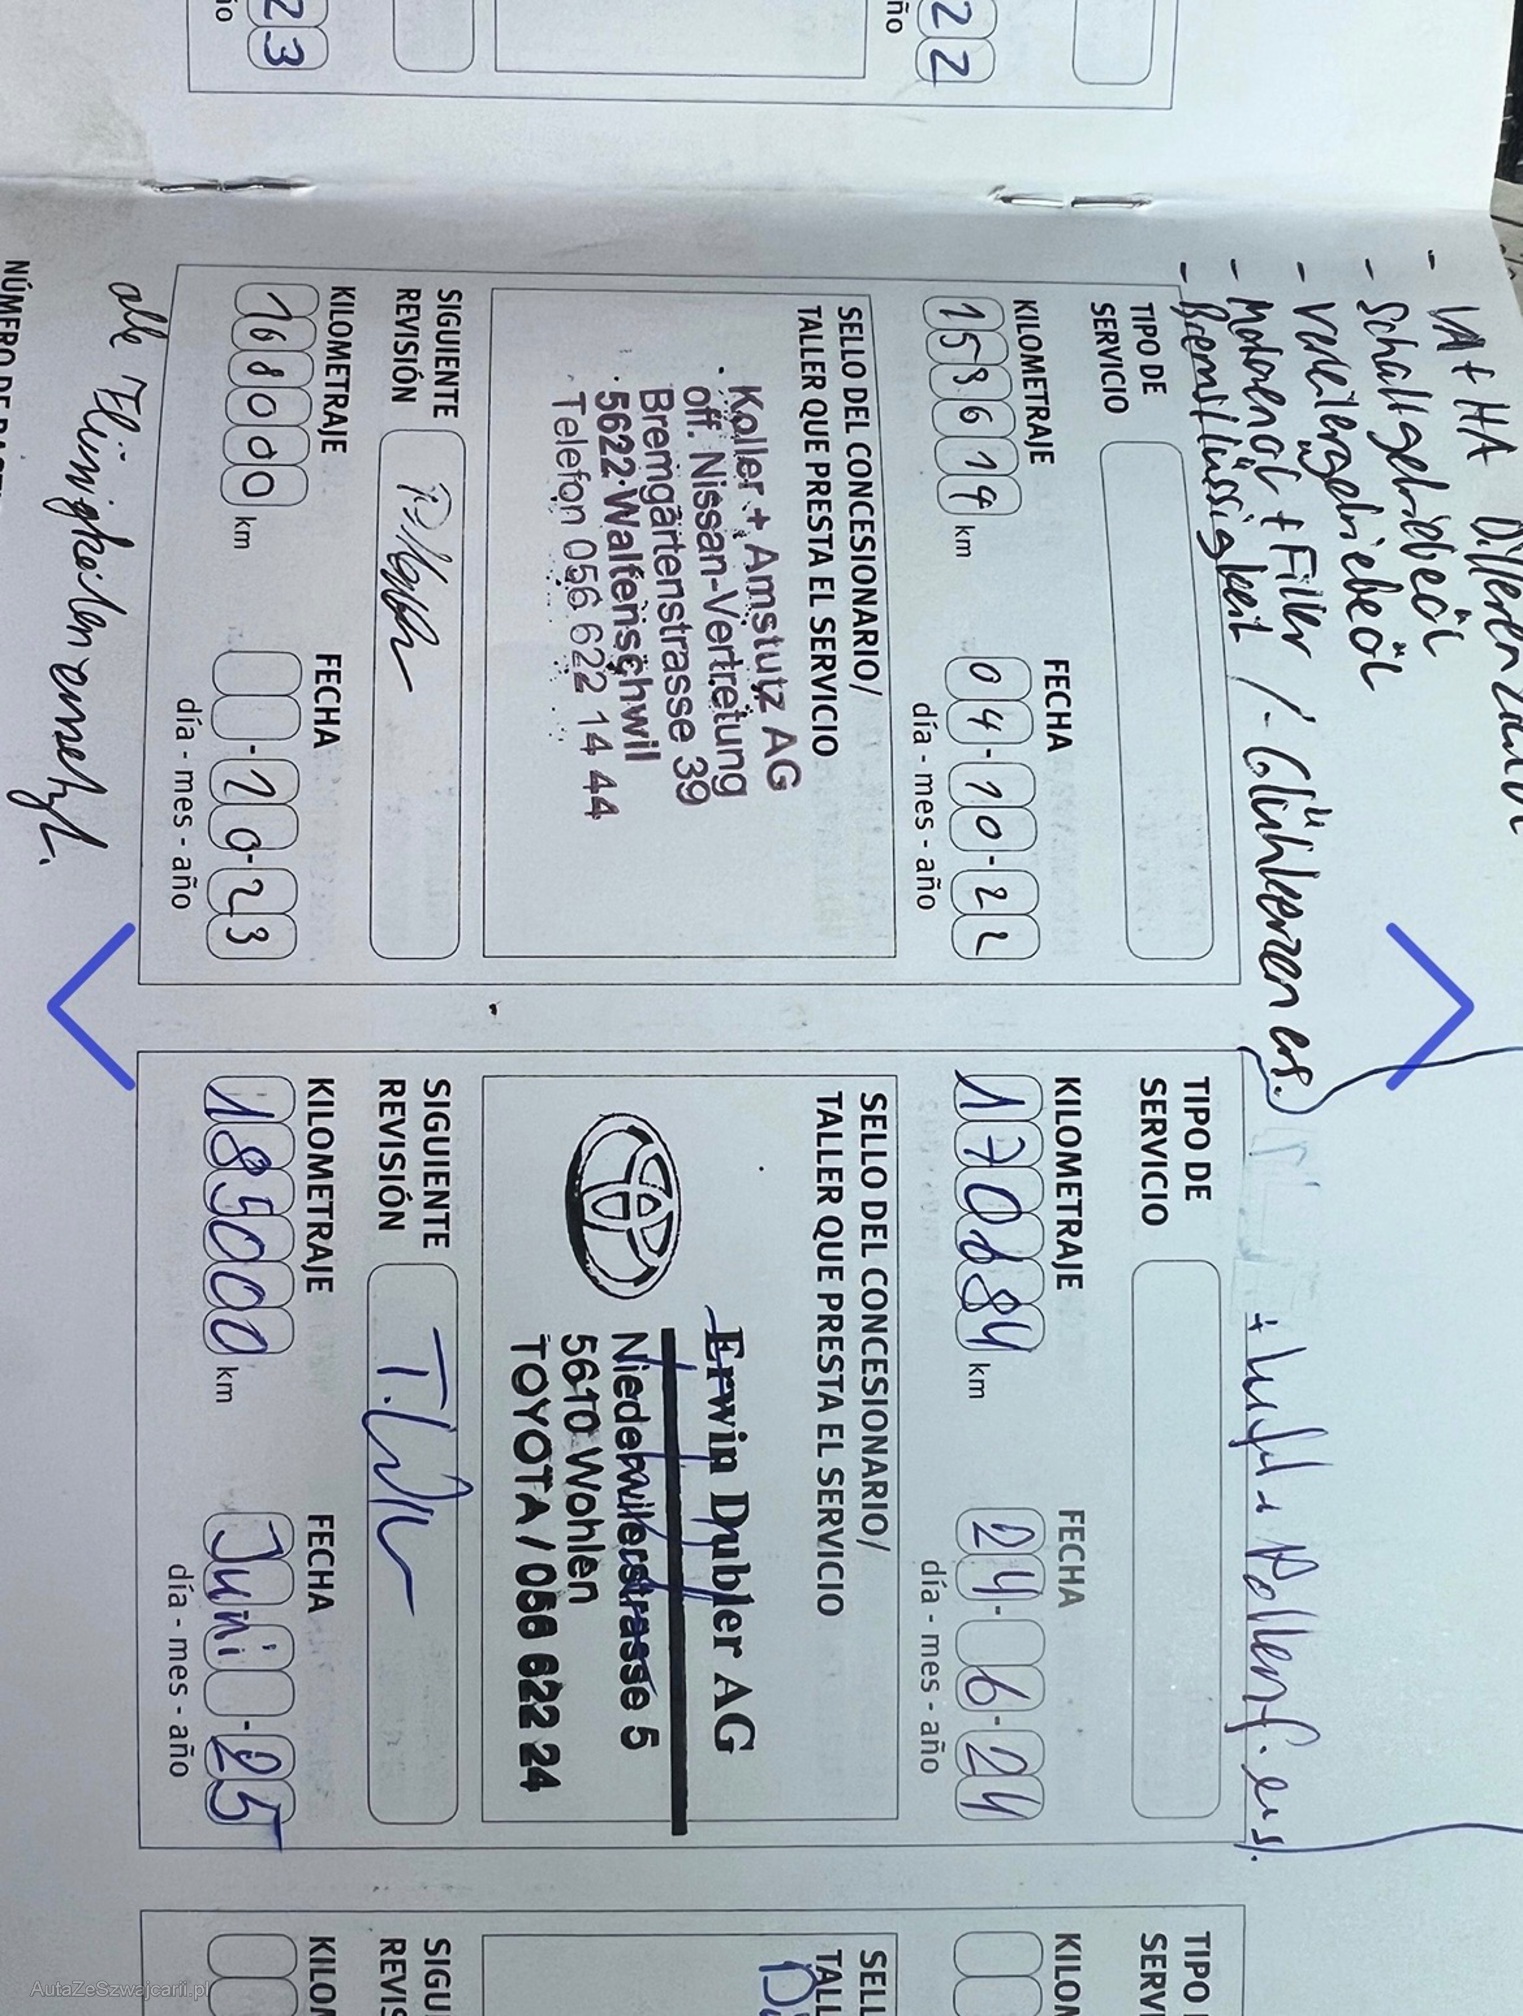 23
ño
22
ño
- VA + HA Differenzialöl
- Schaltgetriebeöl
- Verteilergetriebeöl
- Motorenöl + Filter
- Bremsflüssigkeit / - Glühkerzen ers.
TIPO DE
SERVICIO
KILOMETRAJE
FECHA
153614 km
04-10-22
día - mes - año
SELLO DEL CONCESIONARIO/
TALLER QUE PRESTA EL SERVICIO
Koller + Amstutz AG
off. Nissan-Vertretung
Bremgartenstrasse 39
5622 Waltenschwil
Telefon 056 622 14 44
SIGUIENTE
REVISIÓN
KILOMETRAJE
FECHA
168000 km
-10-23
día - mes - año
alle Flüssigkeiten ersetzt.
+ Luft + Pollenf. ers.
TIPO DE
SERVICIO
KILOMETRAJE
FECHA
170684 km
24-6-24
día - mes - año
SELLO DEL CONCESIONARIO/
TALLER QUE PRESTA EL SERVICIO
Erwin Dubler AG
Niederwilerstrasse 5
5610 Wohlen
TOYOTA / 056 622 24
SIGUIENTE
REVISIÓN
KILOMETRAJE
FECHA
185000 km
Juni -25
día - mes - año
TIPO
SERV
KILOM
SELL
TALL
SIGU
REVIS
KILOM
AutaZeSzwajcarii.pl